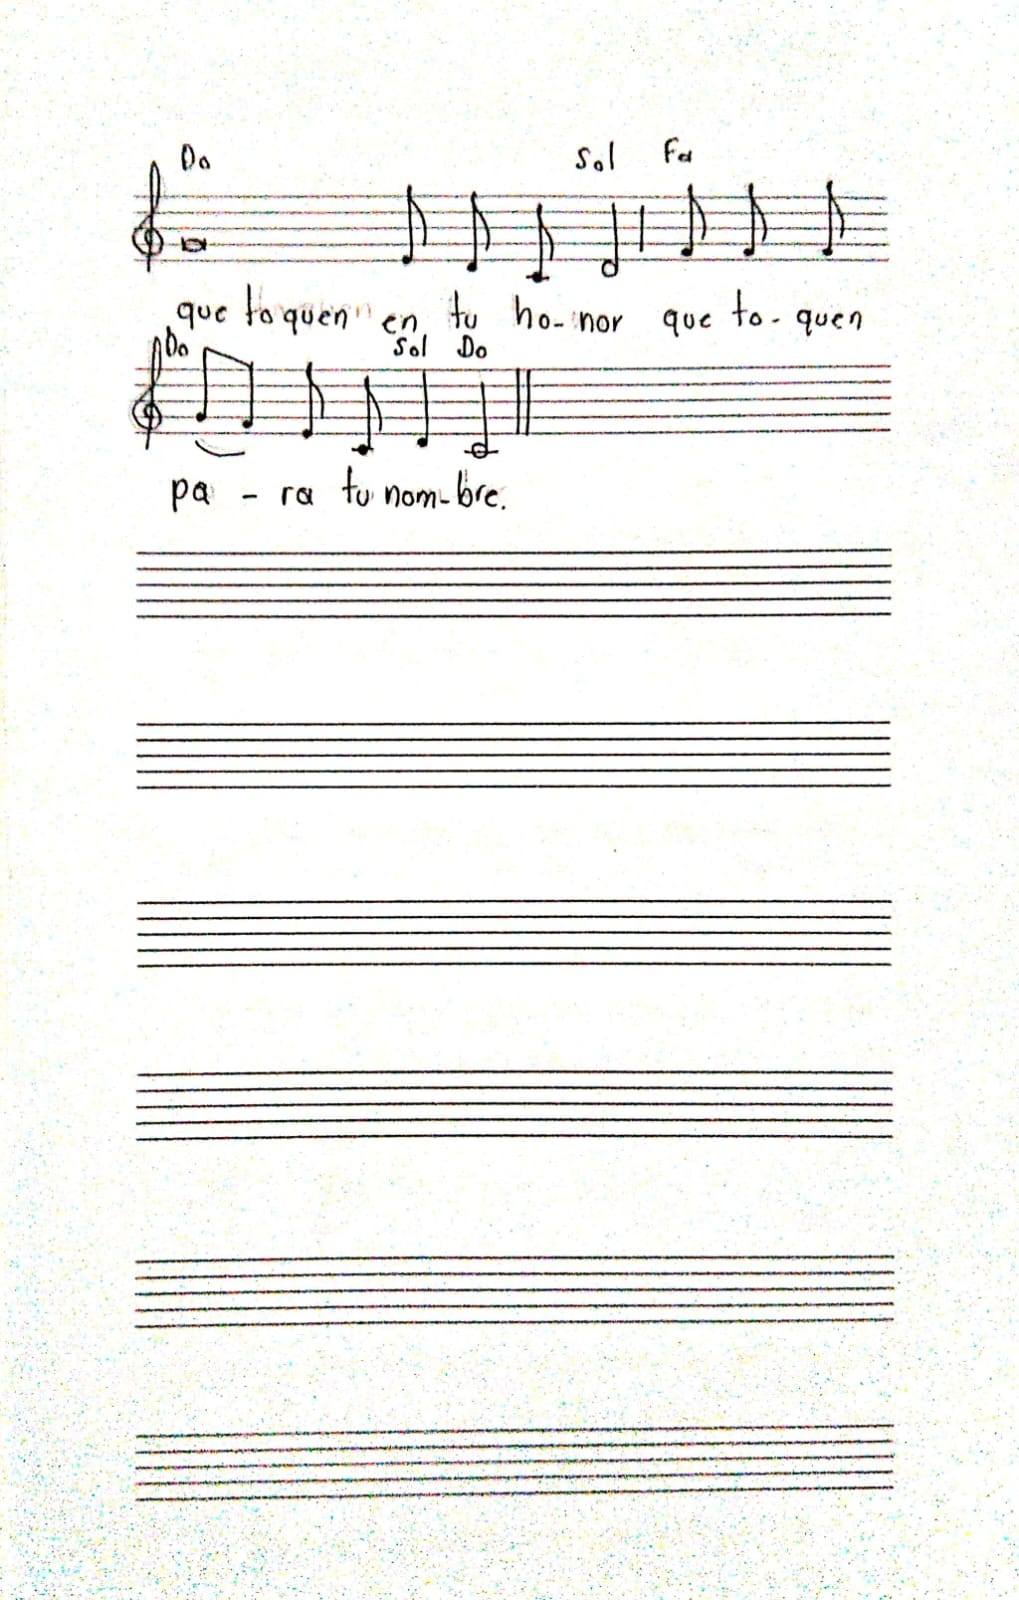 Do Sol Fa
que toquen en tu ho-nor que to-quen
Do Sol Do
pa-ra tu nom-bre.